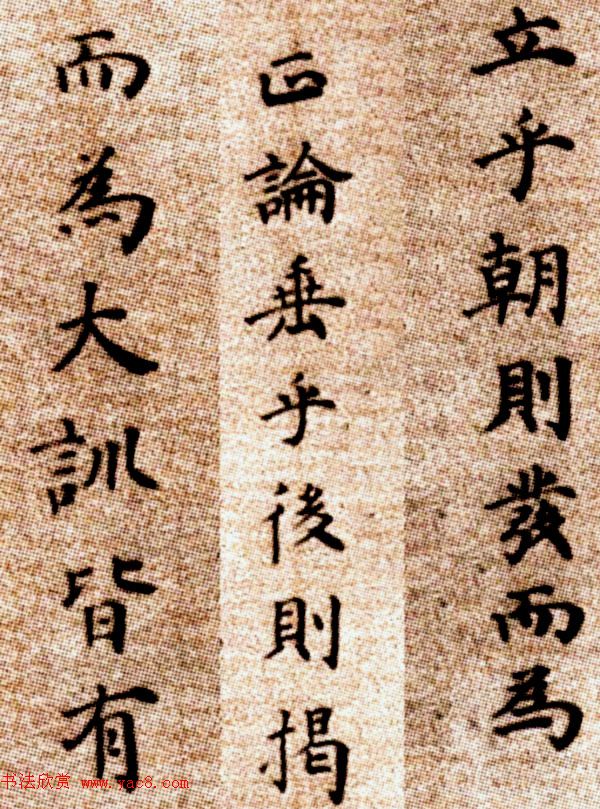 立乎朝則發而為
正論垂乎後則揭
而為大訓皆有
书法欣赏 www.yac8.com